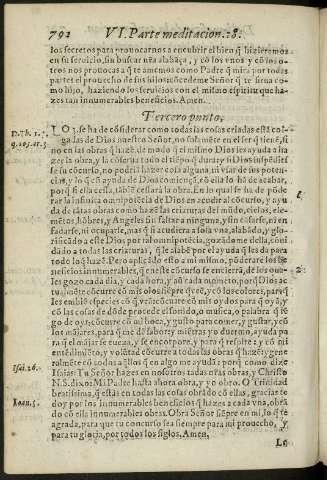 792 VI. Parte meditacion. 28.
los secretos para provocarnos a encubrir el bien q̃ hizieremos
en su servicio, sin buscar nr̃a alabãça, y cõ los vnos y cõ los o-
tros nos provoca a q̃ te amemos como Padre q̃ mira por todas
partes el provecho de sus hijos: cõcedeme Señor q̃ te sirva co-
mo hijo, haziendo los servicios con el mismo espiritu que ha-
zes tan innumerables beneficios. Amen.
Tercero punto.
LO 3. se ha de cõsiderar como todas las cosas criadas estã col-
gadas de Dios nuestro Señor, no solmẽte en el ser q̃ tiene, si-
no en las obras q̃ hazẽ de modo q̃ el mismo Dios les ayuda a ha-
zer la obra, y la cõserva todo el tiempo q̃ dura: y si Dios suspẽdiesse
su cõcurso, no podriã hazer cosa alguna, ni vsar de sus poten-
cias, y lo q̃ cõ ayuda de Dios comiençã, cõ ella lo hã de acabar,
porq̃ si ella cessa, tãbiẽ cessarà la obra. En lo qual se ha de põde-
rar la infinita omnipotẽcia de Dios en acudir al cõcurso, y ayu-
da de tãtas obras como hazẽ las criaturas del mũdo, cielos, ele-
mẽtos, hõbres, y Angeles sin faltar a ninguna, y sin cãsarse, ni en-
fadarse, ni ocuparle, mas q̃ si acudiera a sola vna, alabãdo, y glo-
rificãdo a este Dios por tal omnipotẽcia, gozãdome della, cõbi-
dãdo a todas las criaturas, q̃ le alabẽ por el ayuda q̃ les da para
todo lo q̃ hazẽ. Pero aplicãdo esto a mi mismo, põderarè los be-
neficios innumerables, q̃ en este cõcurso se encierrã, de los qua-
les gozo cada dia, y cada hora, y aũ cada momento, porq̃ Dios ac-
tualmẽte cõcurre cõ mis ojos siẽpre q̃ veo, y cõ los colores, para q̃
les embiẽ especies cõ q̃ vea: cõcurre cõ mis oydos para q̃ oyã, y
cõ las cosas de dõde procede el sonido, o musica, o palabra q̃ te-
go de oyr: cõcurre cõ mi boca, y gusto para comer, y gustar, y cõ
los mãjares, para q̃ me dẽ sabor: y miẽtras yo duermo, ayuda pa-
ra q̃ el mãjar se cueza, y se encorpore, y para q̃ respire: y cõ mi
entẽdimiẽto, y volũtad cõcurre a todas las obras q̃ hazẽ: y gene-
ralmẽte cõ todos aq̃llos q̃ en algo me ayudã: porq̃ como dize
Isaias: Tu Señor hazes en nosotros todas nr̃as obras, y Christo
N. S. dixo: Mi Padre hasta ahora obra, y yo obro. O Trinidad
beatissima, q̃ estàs en todas las cosas obrãdo cõ ellas, gracias te
doy por los innumerables beneficios q̃ hazes a cada vna, obrã
do cõ ella innumerables obras. Obra Señor siẽpre en mi, lo q̃ te
agrada, para que tu concurso sea siempre para mi provecho, y
para tu gloria, por todos los siglos. Amen.
Lo
D. Th. 1. p.
q. 105. ar. 5
Isai. 26.
Ioan. 5.